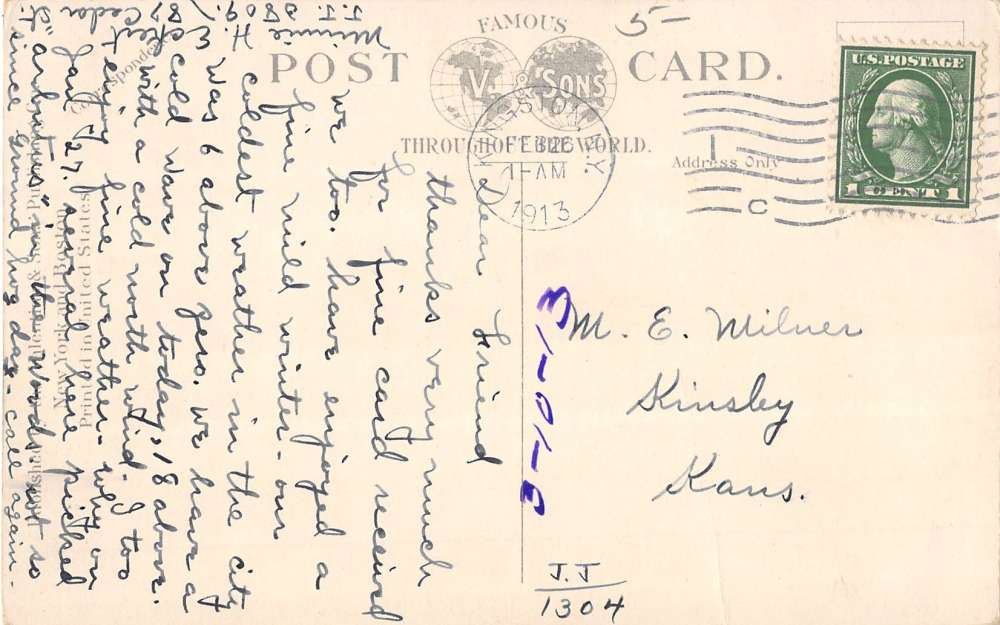 FAMOUS
POST CARD.
V. & SONS
THROUGHOUT THE WORLD.
5-
U.S. POSTAGE
1 CENT 1
KINGSTON, N.Y.
FEB 26
1-AM
1913
1
C
Address Only
M. E. Milner
Kinsley
Kans.
3-10-13
J.J
1304
Dear Friend
thanks very much
for fine card received
we too. have enjoyed a
fine mild winter - our
coldest weather in the city
was 6 above zero. we have a
cold wave on today, 18 above.
with a cold north wind. I too
enjoy fine weather - why on
Jan 27. several here picked
"arbutus" in the woods. not so
since ground hog day - call again.
Minnie H. Eckert
87 Cedar St.
J.J. 3809.
New York and Boston
Printed in United States